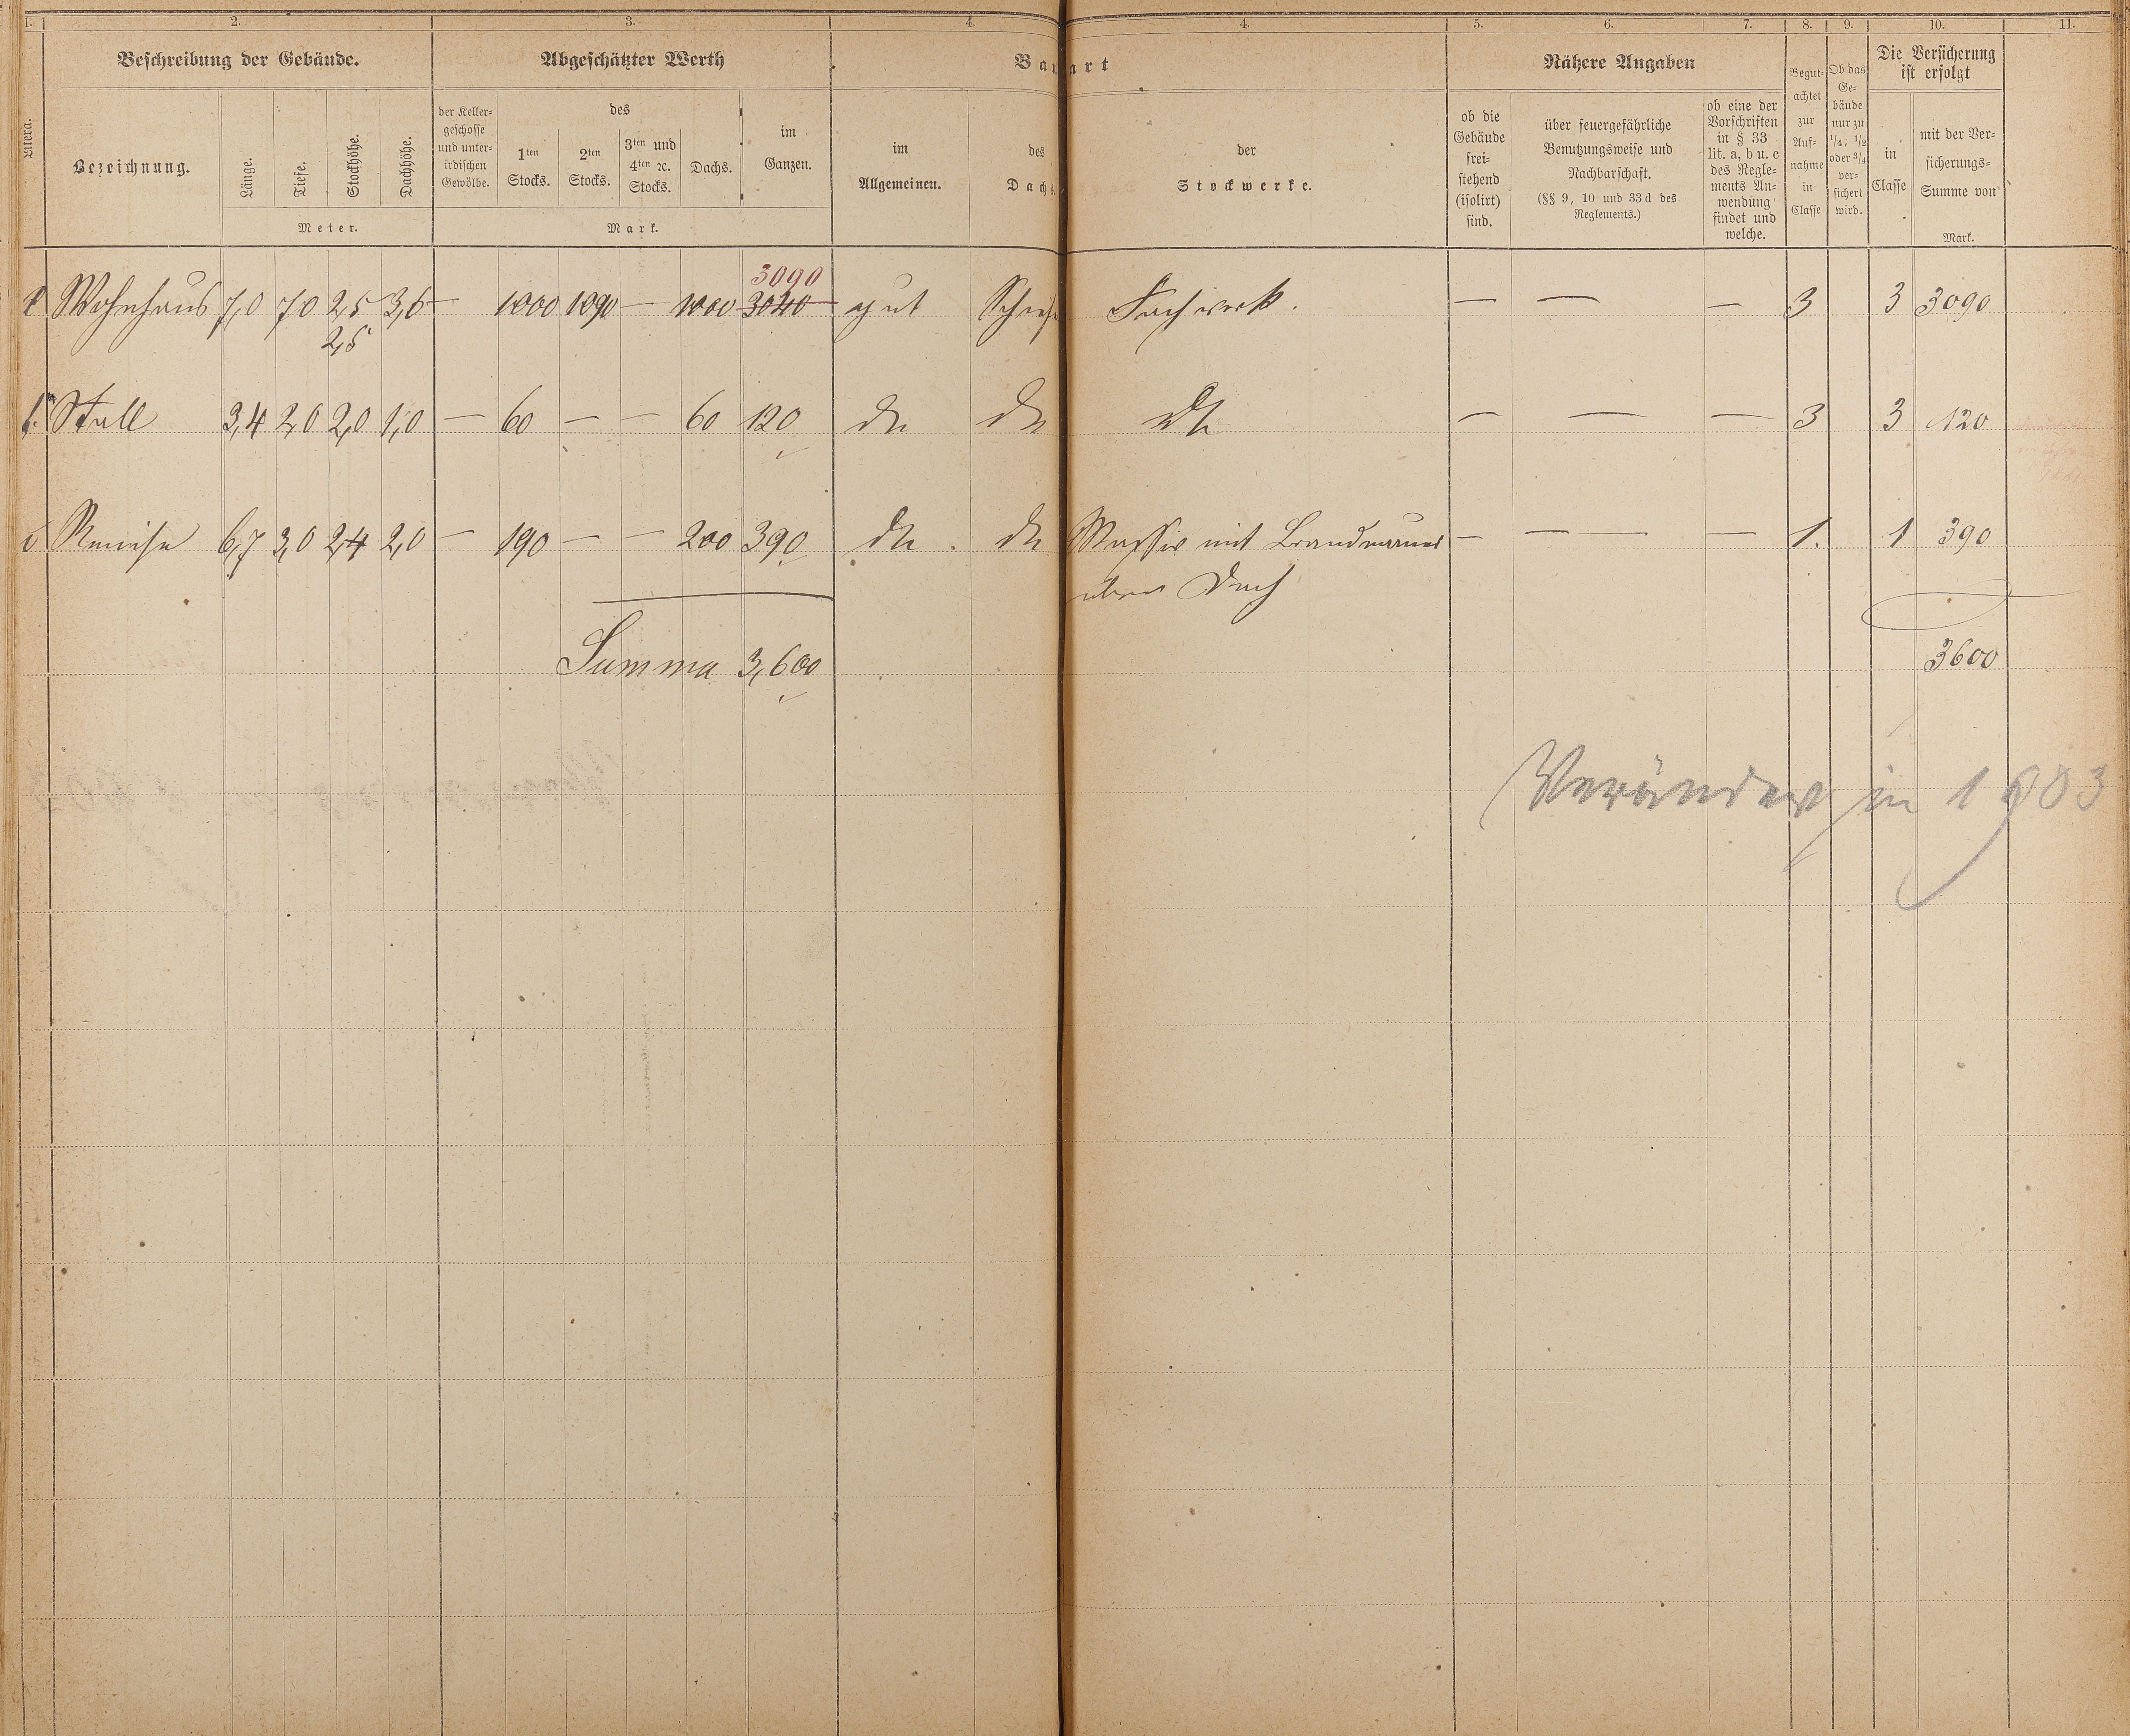 1. 2. 3. 4. 4. 5. 6. 7. 8. 9. 10. 11.
Beschreibung der Gebäude. Abgeschätzter Werth Bau art Nähere Angaben Die Versicherung
ist erfolgt
Litera. Bezeichnung. Länge. Tiefe. Stockhöhe. Dachhöhe.
Meter.
der Keller-
geschosse
und unter-
irdischen
Gewölbe.
des
1ten
Stocks.
2ten
Stocks.
3ten und
4ten ꝛc.
Stocks.
Dachs.
im
Ganzen.
Mark.
im
Allgemeinen.
des
Dach
der
Stockwerke.
ob die
Gebäude
frei-
stehend
(isolirt)
sind.
über feuergefährliche
Benutzungsweise und
Nachbarschaft.
(§§ 9, 10 und 33 d des
Reglements.)
ob eine der
Vorschriften
in § 33
lit. a, b u. c
des Regle-
ments An-
wendung
findet und
welche.
Begut-
achtet
zur
Auf-
nahme
in
Classe
Ob das
Ge-
bäude
nur zu
1/4, 1/2
oder 3/4
ver-
sichert
wird.
in
Classe
mit der Ver-
sicherungs-
Summe von
Mark.
3090
Wohnhaus 7,0 7,0 2,5 3,6 — 1000 1090 — 1000 3040 gut Schief Fachwerk. — — — 3 3 3090
2,5
Stall 3,4 2,0 2,0 1,0 — 60 — — 60 120 do do do — — — 3 3 120
Remise 6,7 3,0 2,4 2,0 — 190 — — 200 390 do. do Massiv mit Brandmauer — — — — 1. 1 390
über Dach
Summa 3,600 3600
Verändert in 1903